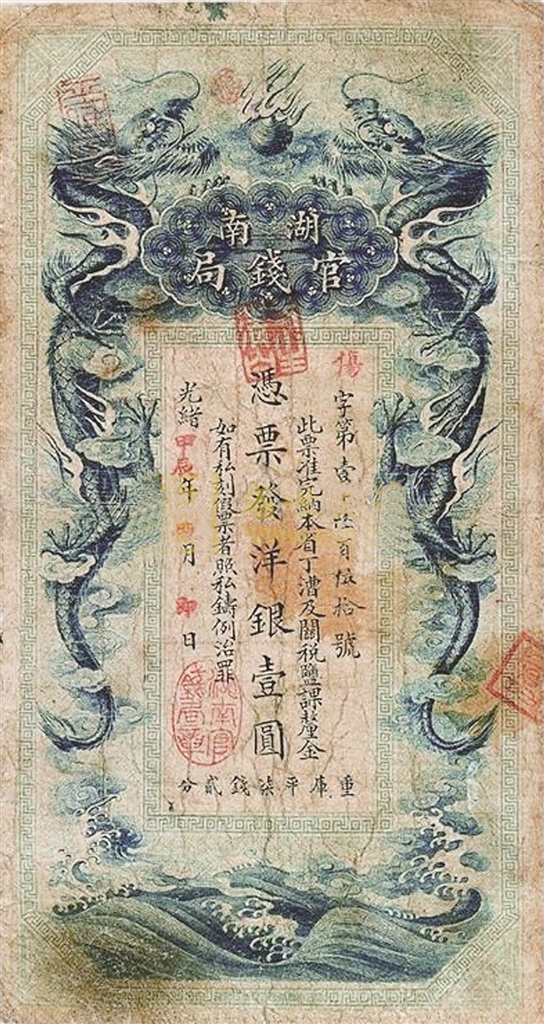 湖南
官錢局
傷字第壹千陸百伍拾號
此票准完納本省丁漕及關稅鹽課釐金
憑票發洋銀壹圓
如有私刻假票者照私鑄例治罪
光緒甲辰年 月 日
重庫平柒錢貳分
湖南官錢局章